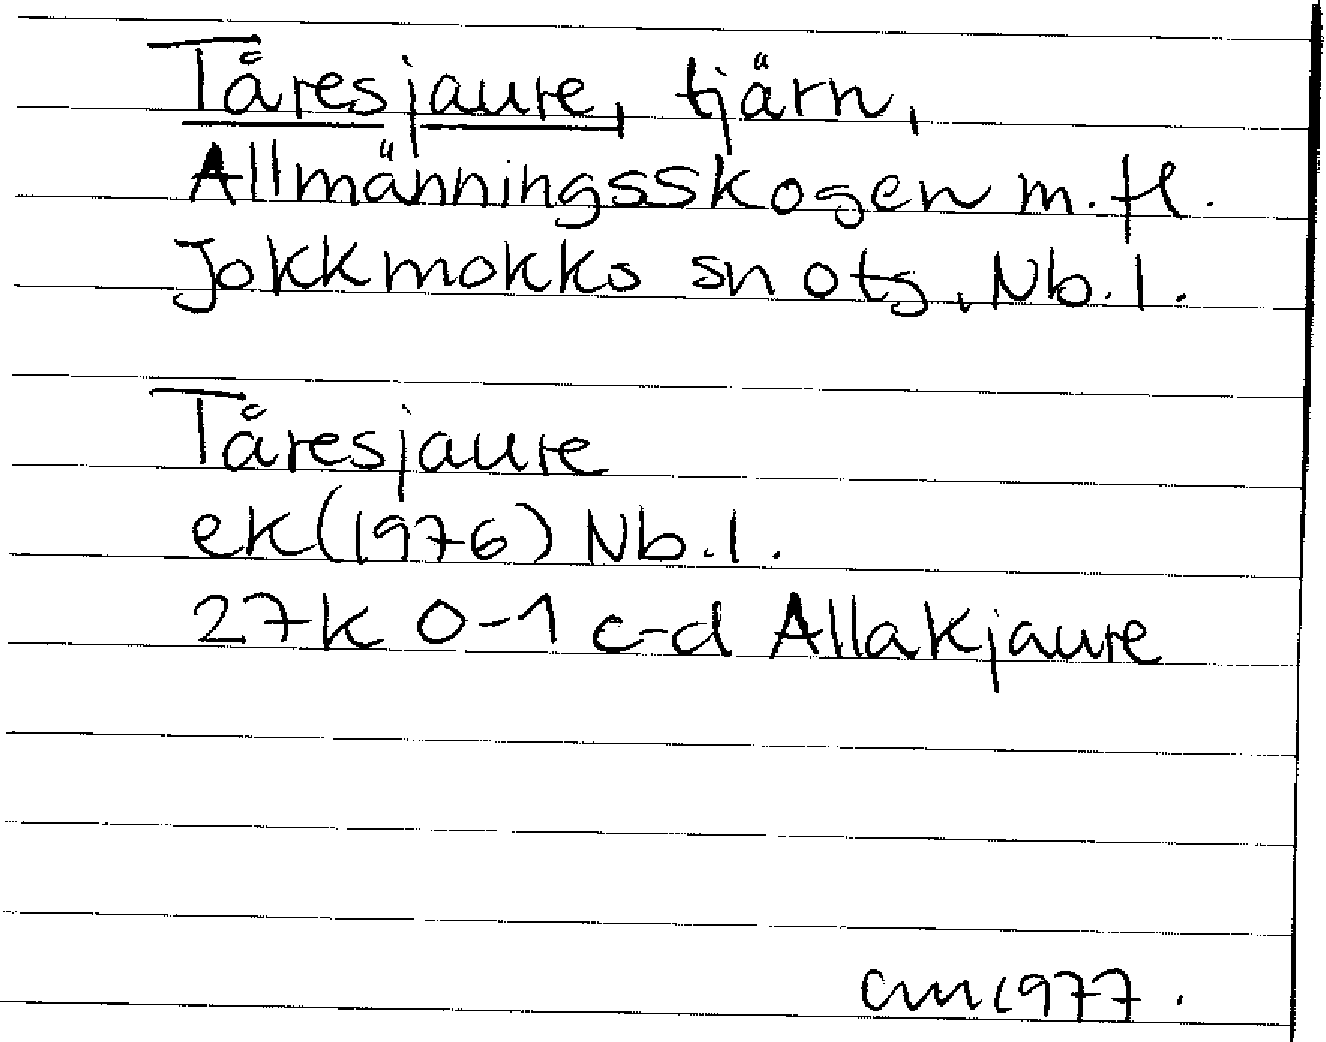 Tåresjaure, tjärn,
Allmänningsskogen m.fl.
Jokkmokks sn o ts, Nb.l.
Tåresjaure
ek(1976) Nb.l.
27K 0-1 c-d Allakjaure
cm 1977.